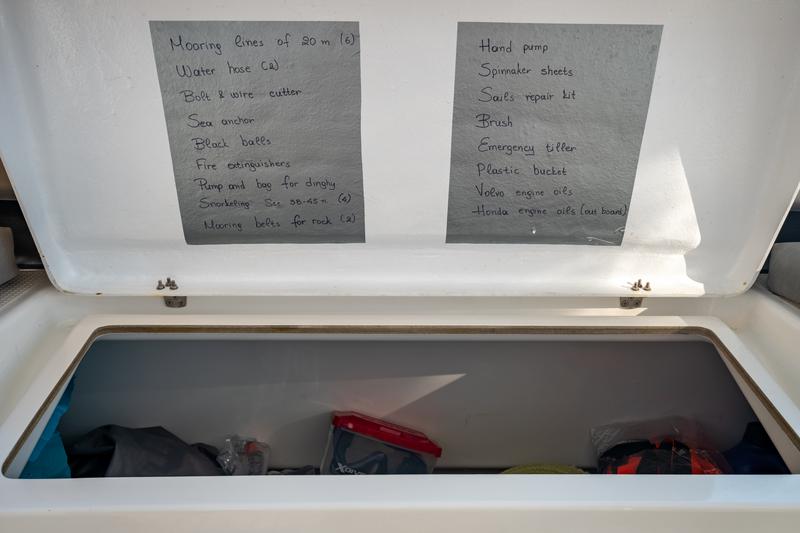 Mooring lines of 20 m (6)
Water hose (2)
Bolt & wire cutter
Sea anchor
Black balls
Fire extinguishers
Pump and bag for dinghy
Snorkeling 38-45 n (4)
Mooring belts for rock (2)
Hand pump
Spinnaker sheets
Sails repair kit
Brush
Emergency tiller
Plastic bucket
Volvo engine oils
Honda engine oils (out board)